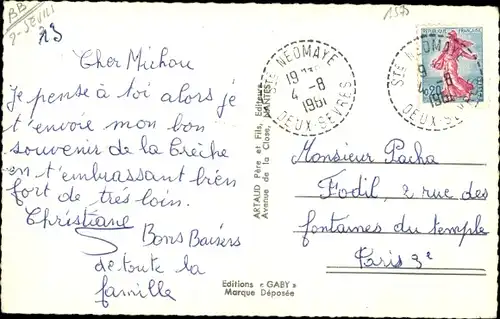 BB
D-SEVILI
13
1575
Cher Michou
Je pense à toi alors je
t'envoie mon bon
souvenir de la Crèche
en t'embrassant bien
fort de très loin.
Christiane
Bons Baisers
de toute la
famille
ARTAUD Père et Fils, Editeurs
Avenue de la Close, NANTES
Editions « GABY »
Marque Déposée
STE NEOMAYE
19 H
4 -8
1961
DEUX SEVRES
STE NEOMAYE
19
4 -8
1961
DEUX SEVRES
0,20
Monsieur Pacha
Fodil, 2 rue des
fontaines du temple
Paris 3e